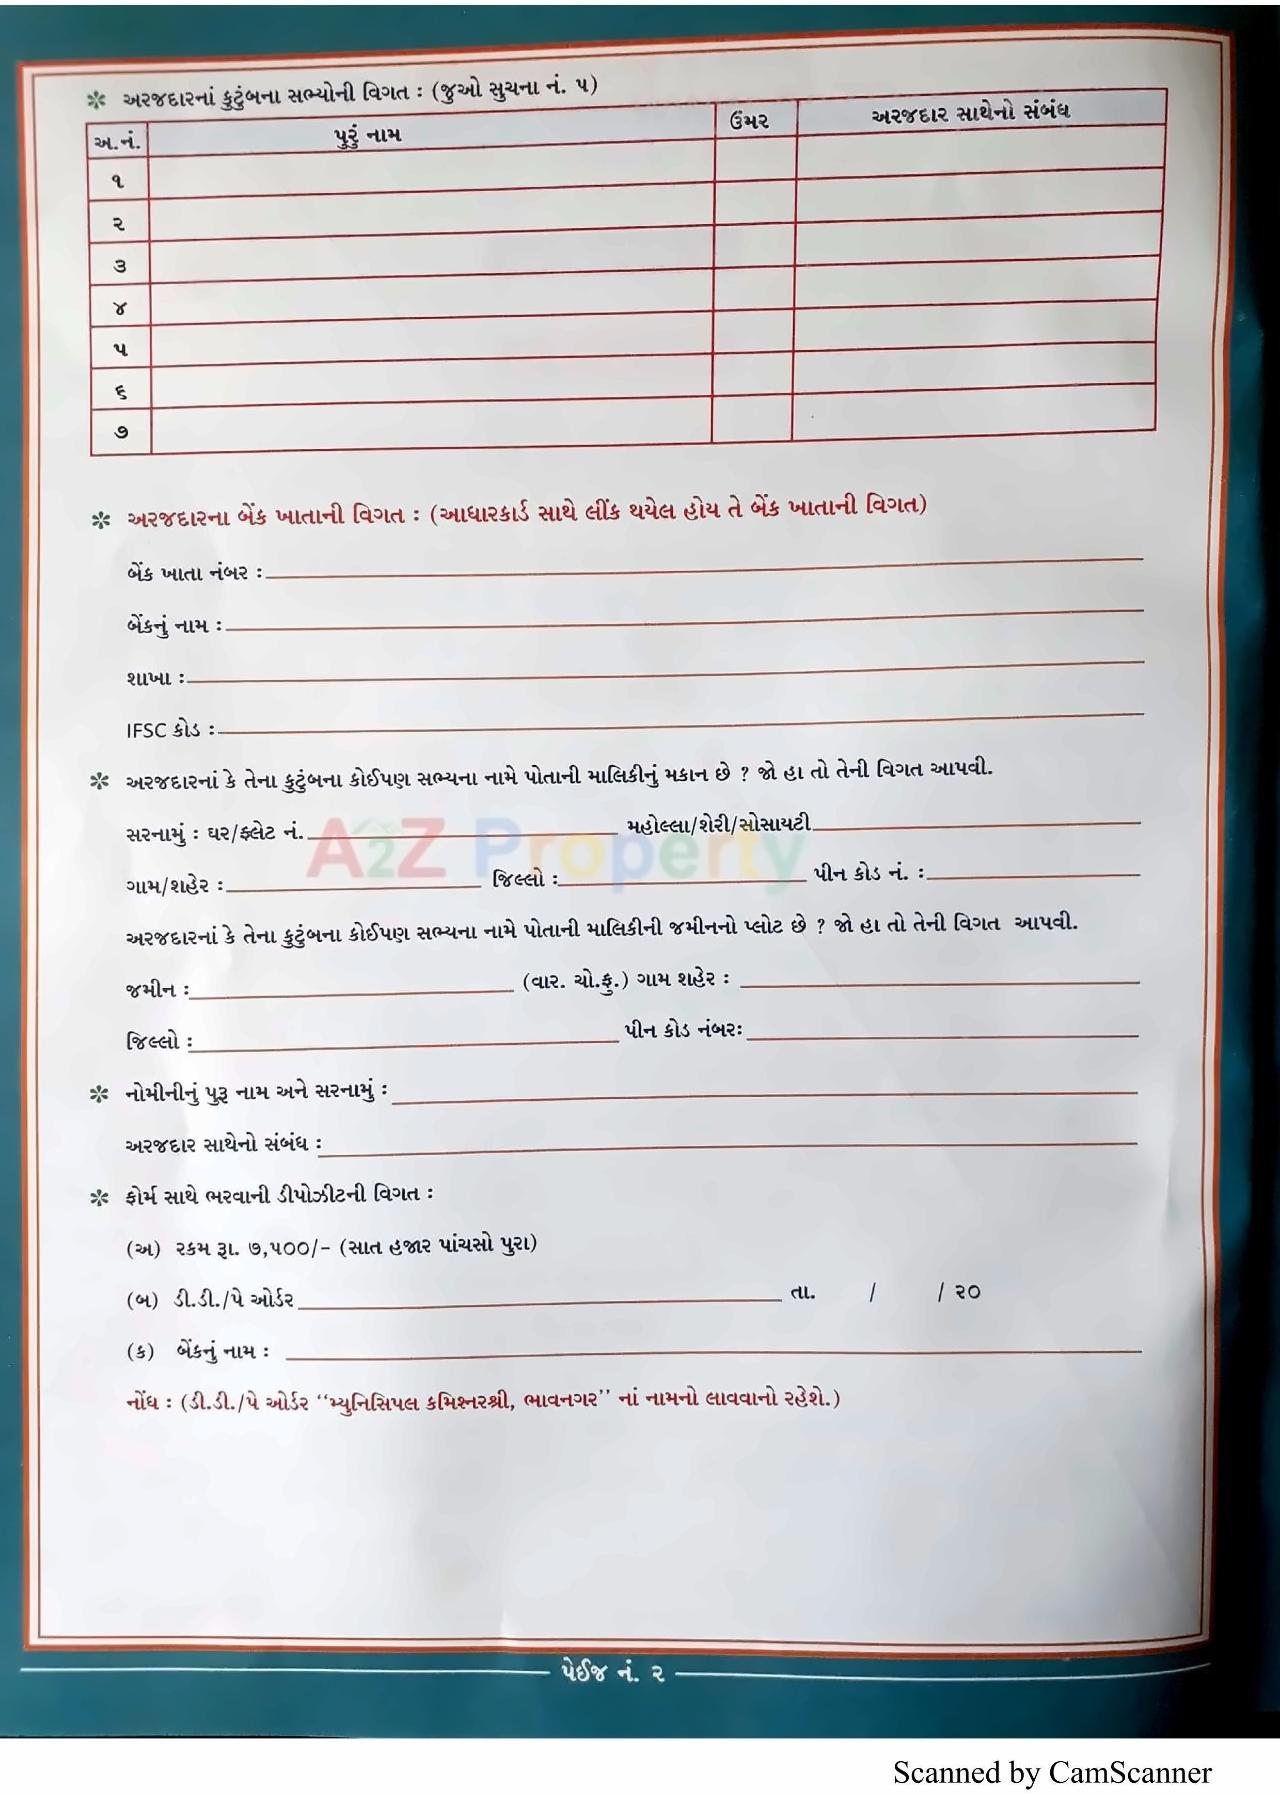 અરજદારનાં કુટુંબના સભ્યોની વિગત : (જુઓ સુચના નં. ૫)
અ.નં. પુરું નામ ઉંમર અરજદાર સાથેનો સંબંધ
૧
૨
૩
૪
૫
૬
૭
અરજદારના બેંક ખાતાની વિગત : (આધારકાર્ડ સાથે લીંક થયેલ હોય તે બેંક ખાતાની વિગત)
બેંક ખાતા નંબર :
બેંકનું નામ :
શાખા :
IFSC કોડ :
અરજદારનાં કે તેના કુટુંબના કોઈપણ સભ્યના નામે પોતાની માલિકીનું મકાન છે ? જો હા તો તેની વિગત આપવી.
સરનામું : ઘર/ફ્લેટ નં. મહોલ્લા/શેરી/સોસાયટી
A2Z Property
ગામ/શહેર : જિલ્લો : પીન કોડ નં. :
અરજદારનાં કે તેના કુટુંબના કોઈપણ સભ્યના નામે પોતાની માલિકીની જમીનનો પ્લોટ છે ? જો હા તો તેની વિગત આપવી.
જમીન : (વાર. ચો.ફુ.) ગામ શહેર :
જિલ્લો : પીન કોડ નંબરઃ
નોમીનીનું પુરૂ નામ અને સરનામું :
અરજદાર સાથેનો સંબંધ :
ફોર્મ સાથે ભરવાની ડીપોઝીટની વિગત :
(અ) રકમ રૂા. ૭,૫૦૦/- (સાત હજાર પાંચસો પુરા)
(બ) ડી.ડી./પે ઓર્ડર તા. / / ૨૦
(ક) બેંકનું નામ :
નોંધ : (ડી.ડી./પે ઓર્ડર “મ્યુનિસિપલ કમિશ્નરશ્રી, ભાવનગર” નાં નામનો લાવવાનો રહેશે.)
પેઈજ નં. ૨
Scanned by CamScanner